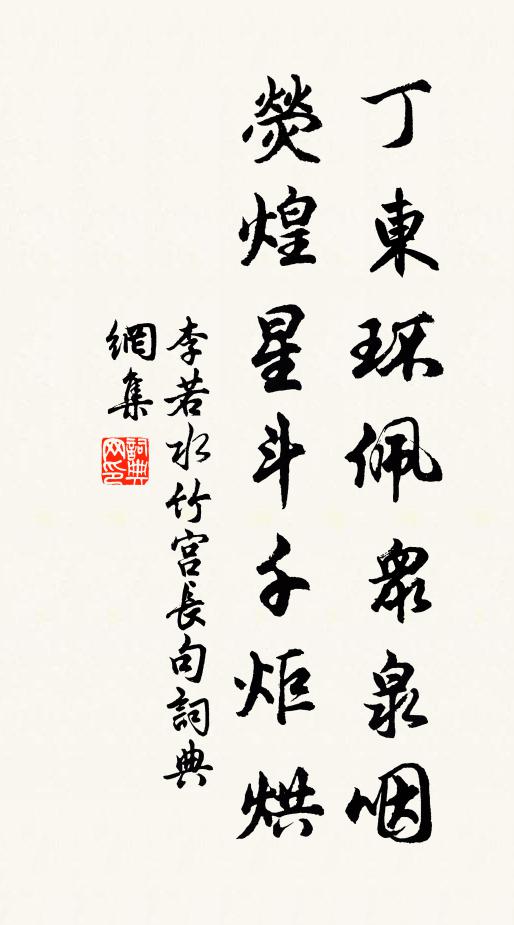 丁東环佩眾泉咽
熒煌星斗千炬烘
李若水竹宮長句詞典
網集
詞典网印